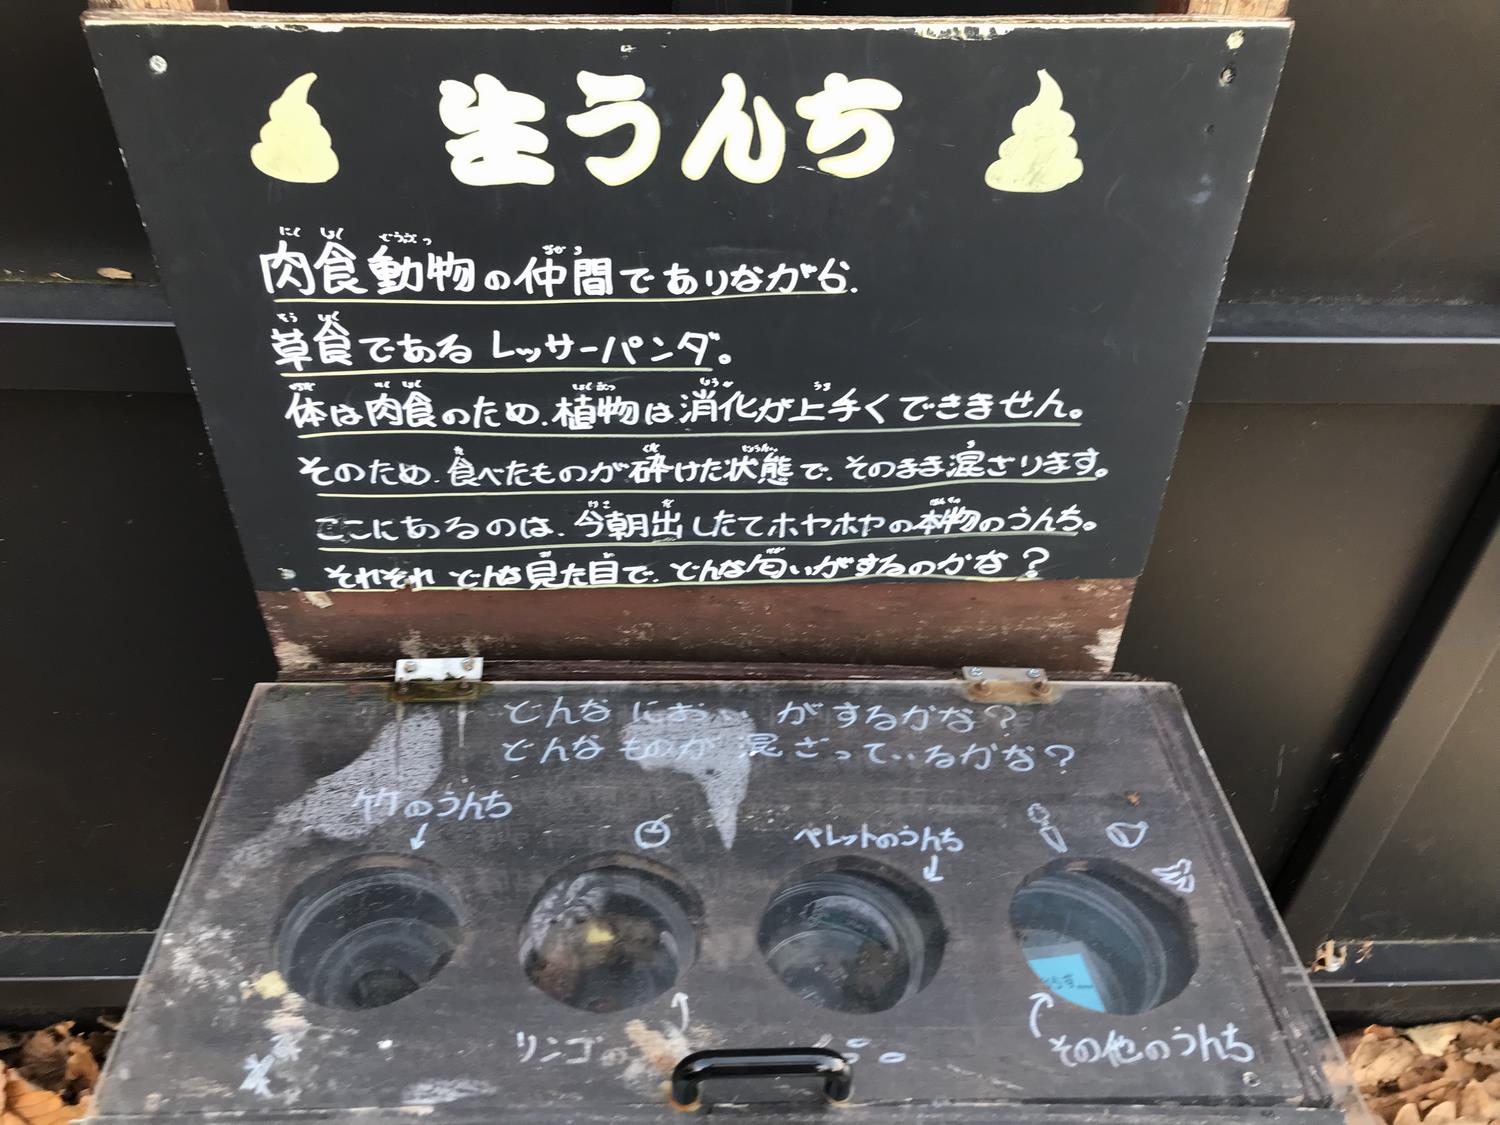 生うんち
肉食動物の仲間でありながら、
草食であるレッサーパンダ。
体は肉食のため、植物は消化が上手くできません。
そのため、食べたものが砕けた状態で、そのまま混ざります。
ここにあるのは、今朝出したてホヤホヤの本物のうんち。
それぞれどんな見た目で、どんな匂いがするのかな？
どんなにおいがするかな？
どんなものが混ざっているかな？
竹のうんち
ペレットのうんち
リンゴの
その他のうんち